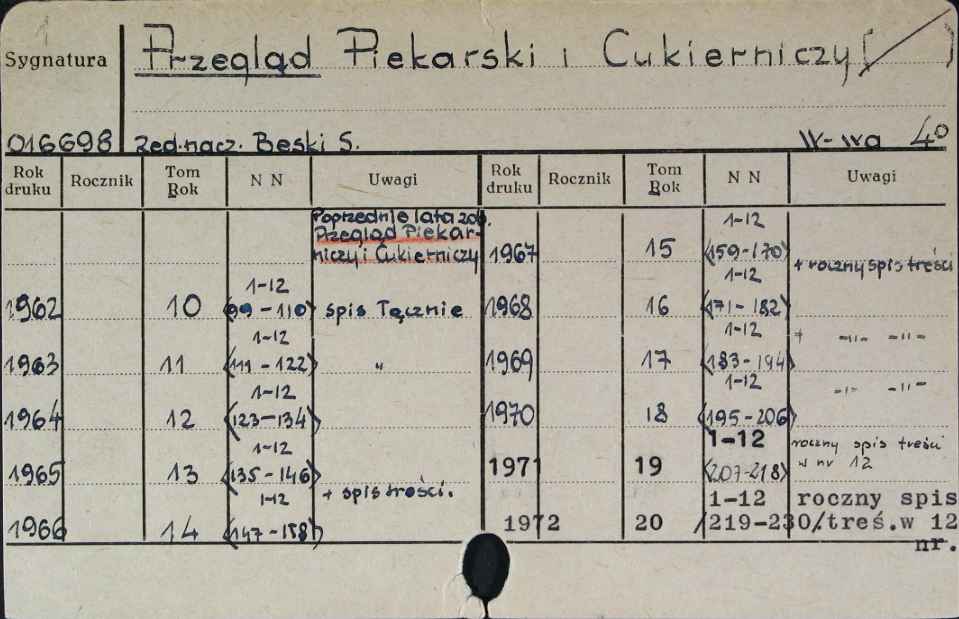 1
Sygnatura
Przegląd Piekarski i Cukierniczy [ ]
016698
red. nacz. Beski S.
W-wa 4°
Rok druku
Rocznik
Tom Rok
N N
Uwagi
Rok druku
Rocznik
Tom Rok
N N
Uwagi
Poprzednie lata zob.
Przegląd Piekar-
niczy i Cukierniczy
1962 10 1-12 (99-110) spis Tącznie
1963 11 1-12 (111-122) "
1964 12 1-12 (123-134)
1965 13 1-12 (135-146)
1966 14 1-12 (147-158) + spis treści.
1967 15 1-12 (159-170) + roczny spis treści
1968 16 1-12 (171-182)
1969 17 1-12 (183-194) + -"- -"-
1970 18 1-12 (195-206) -"- -"-
1971 19 1-12 (207-218) roczny spis treści
w nr 12
1972 20 1-12 /219-230/ roczny spis
treś.w 12
nr.